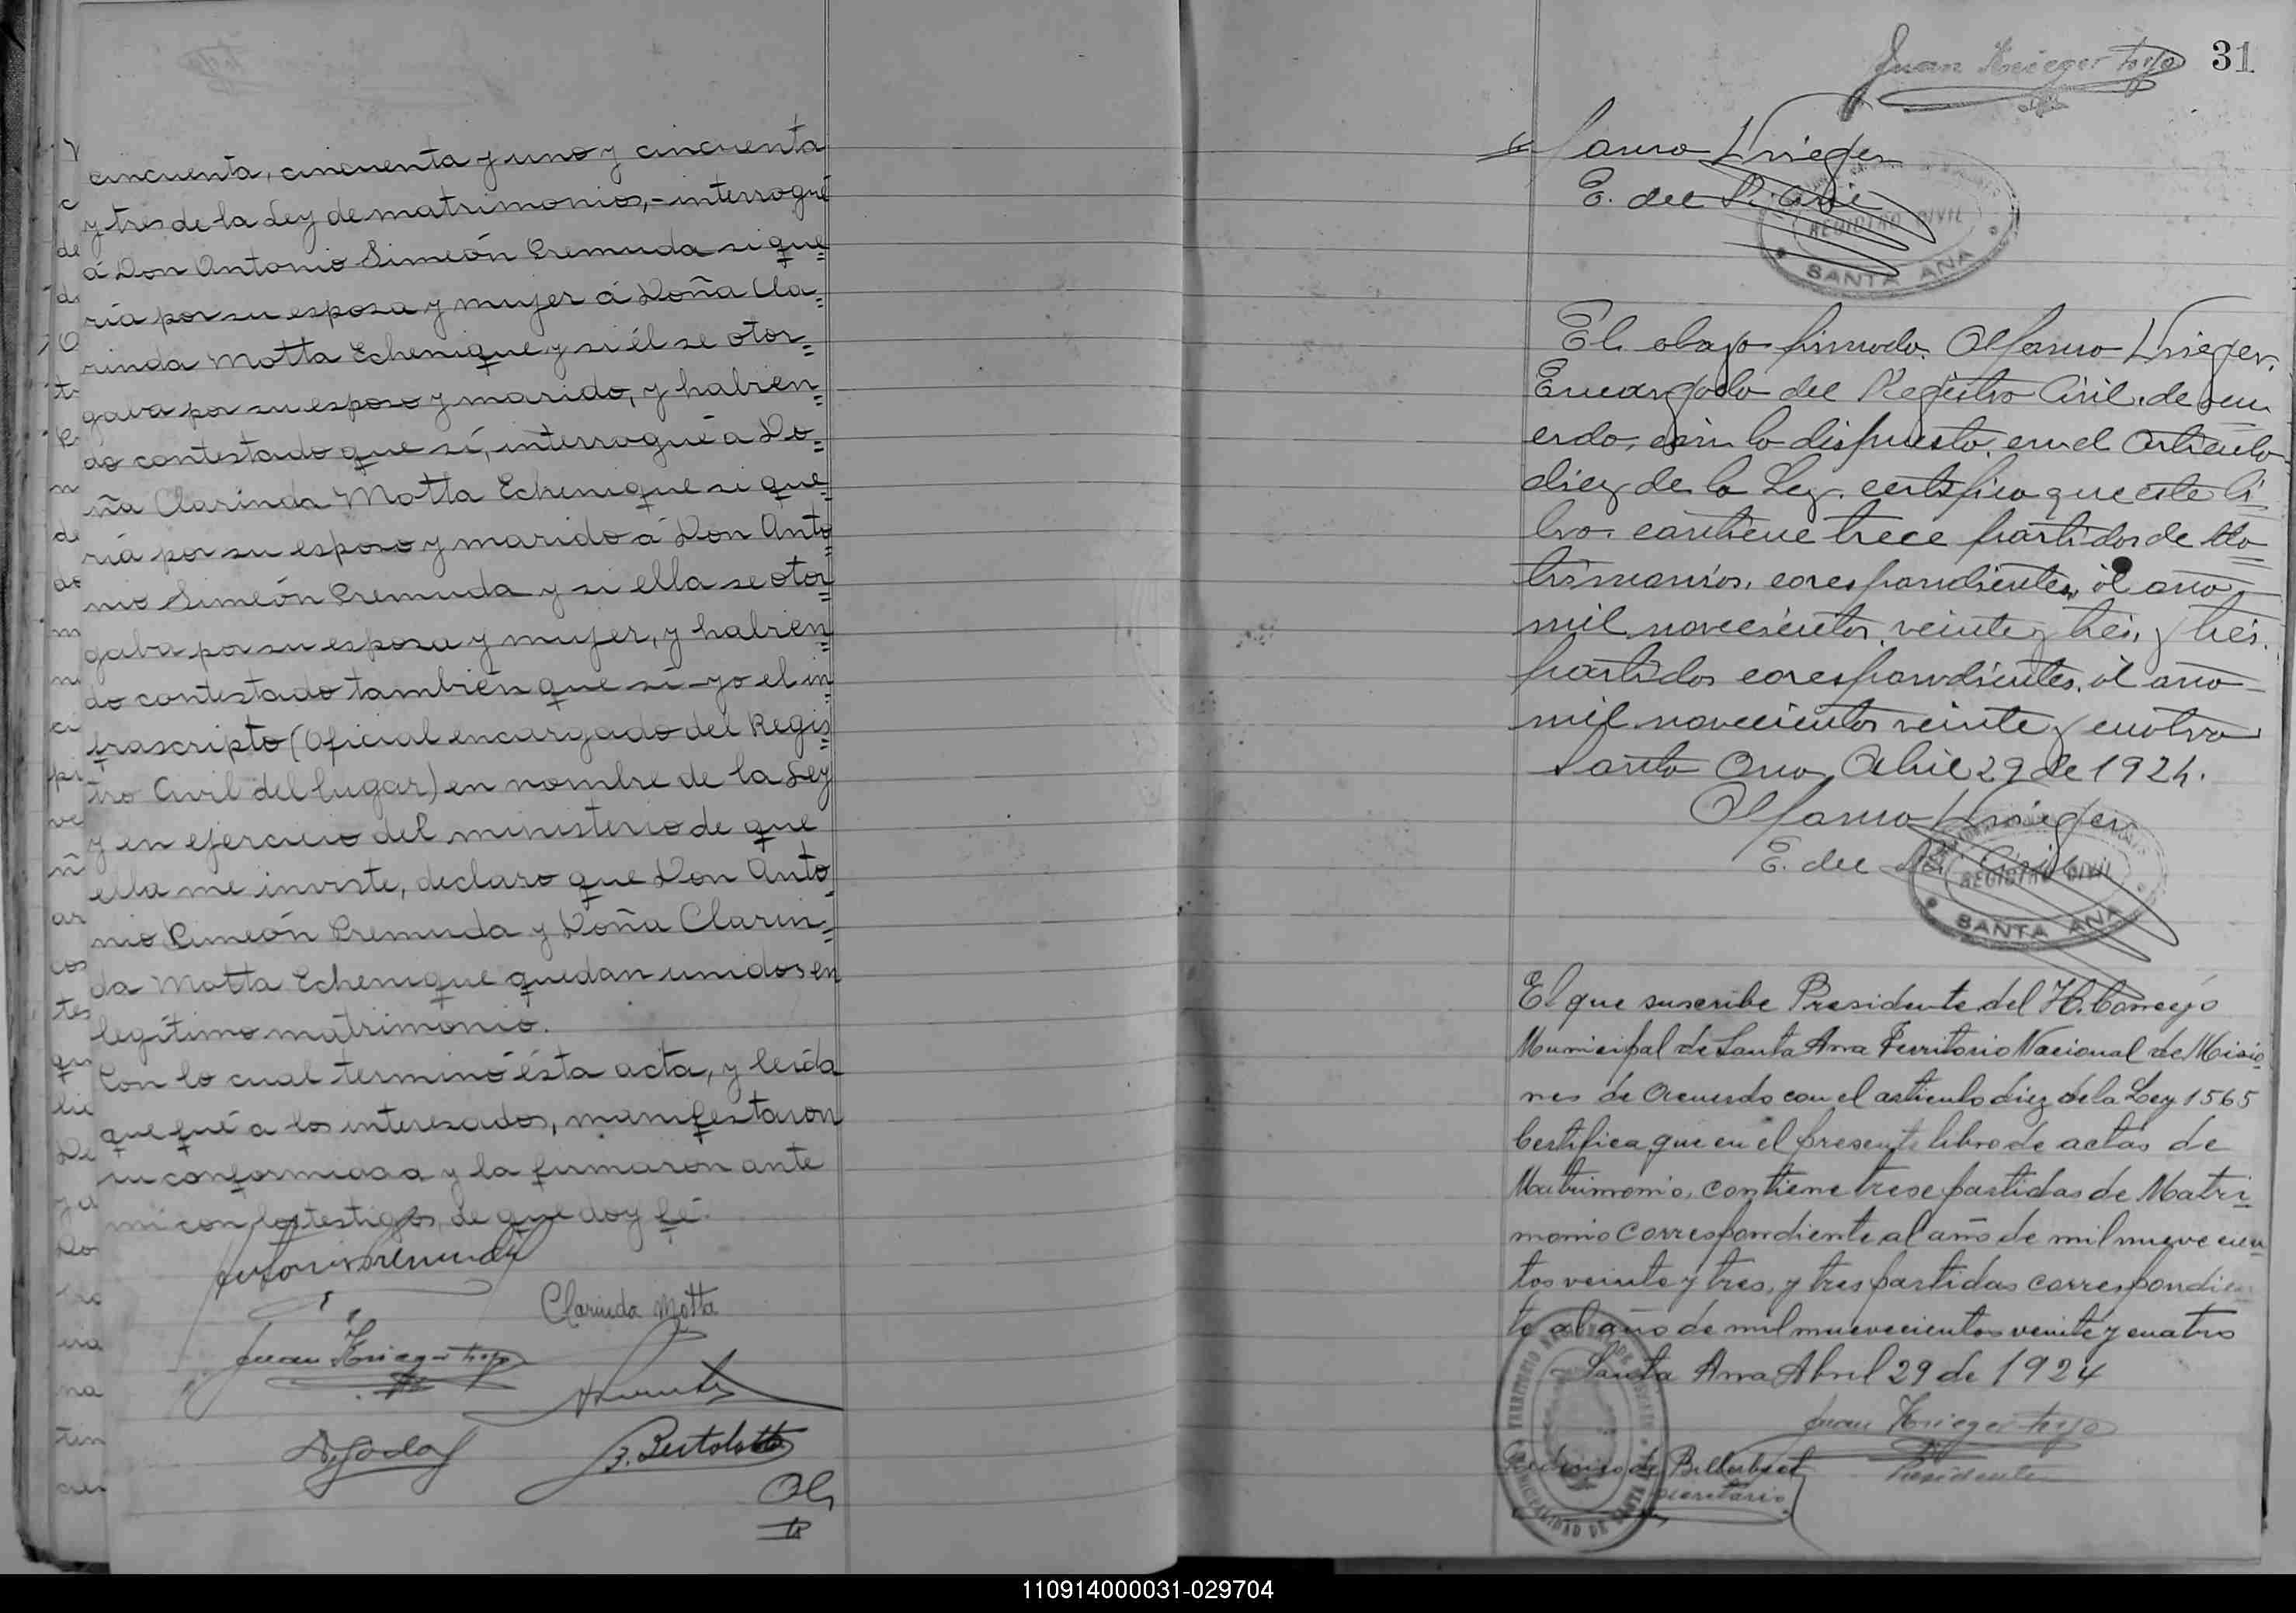 cincuenta, cincuenta y uno y cincuenta
y tres de la Ley de matrimonios,- interrogué
á Don Antonio Simeón Premuda si que=
ria por su esposa y mujer á Doña Cla=
rinda Motta Echenique y si él se otor=
gaba por su esposo y marido, y habien=
do contestado que sí, interrogué a Do=
ña Clarinda Motta Echenique si que=
ria por su esposo y marido á Don Anto=
nio Simeón Premuda y si ella se otor=
gaba por su esposa y mujer, y habien=
do contestado también que sí - yo el in=
frascripto (Oficial encargado del Regis=
tro Civil del lugar) en nombre de la Ley
y en ejercicio del ministerio de que
ella me inviste, declaro que Don Anto=
nio Simeón Premuda y Doña Clarin=
da Motta Echenique quedan unidos en
legítimo matrimonio.
Con lo cual terminó ésta acta, y leída
que fué a los interesados, manifestaron
su conformidad y la firmaron ante
mí con los testigos, de que doy fé.
Antonio Premuda
Clarinda Motta
Juan Krieger hijo
B. Bertolotti
Al
fr
31
Juan Krieger hijo
fr
fonso Krieger
E. del R. Civil
REGISTRO CIVIL
SANTA ANA
El abajo firmado. Alfonso Krieger.
Encargado del Registro Civil. de acu
erdo, con lo dispuesto. en el Articulo
diez de la Ley. certifico que este li
bro. contiene trece partidas de Ma
trimonios, corespondientes, al año
mil novecientos, veinte y tres, y tres.
partidas corespondientes, al año
mil novecientos veinte y cuatro
Santa Ana, Abril 29 de 1924.
Alfonso Krieger
E. del R. Civil
REGISTRO CIVIL
SANTA ANA
El que suscribe Presidente del H. Consejo
Municipal de Santa Ana Territorio Nacional de Misio=
nes de acuerdo con el articulo diez de la Ley 1565
Certifica que en el presente libro de actas de
Matrimonio, contiene trese partidas de Matri=
monio correspondiente al año de mil nueve cien
tos veinte y tres, y tres partidas correspondien
te al año de mil nuevecientos veinte y cuatro
Santa Ana Abril 29 de 1924
Juan Krieger hijo
Presidente
Secretario
MUNICIPALIDAD DE SANTA
110914000031-029704